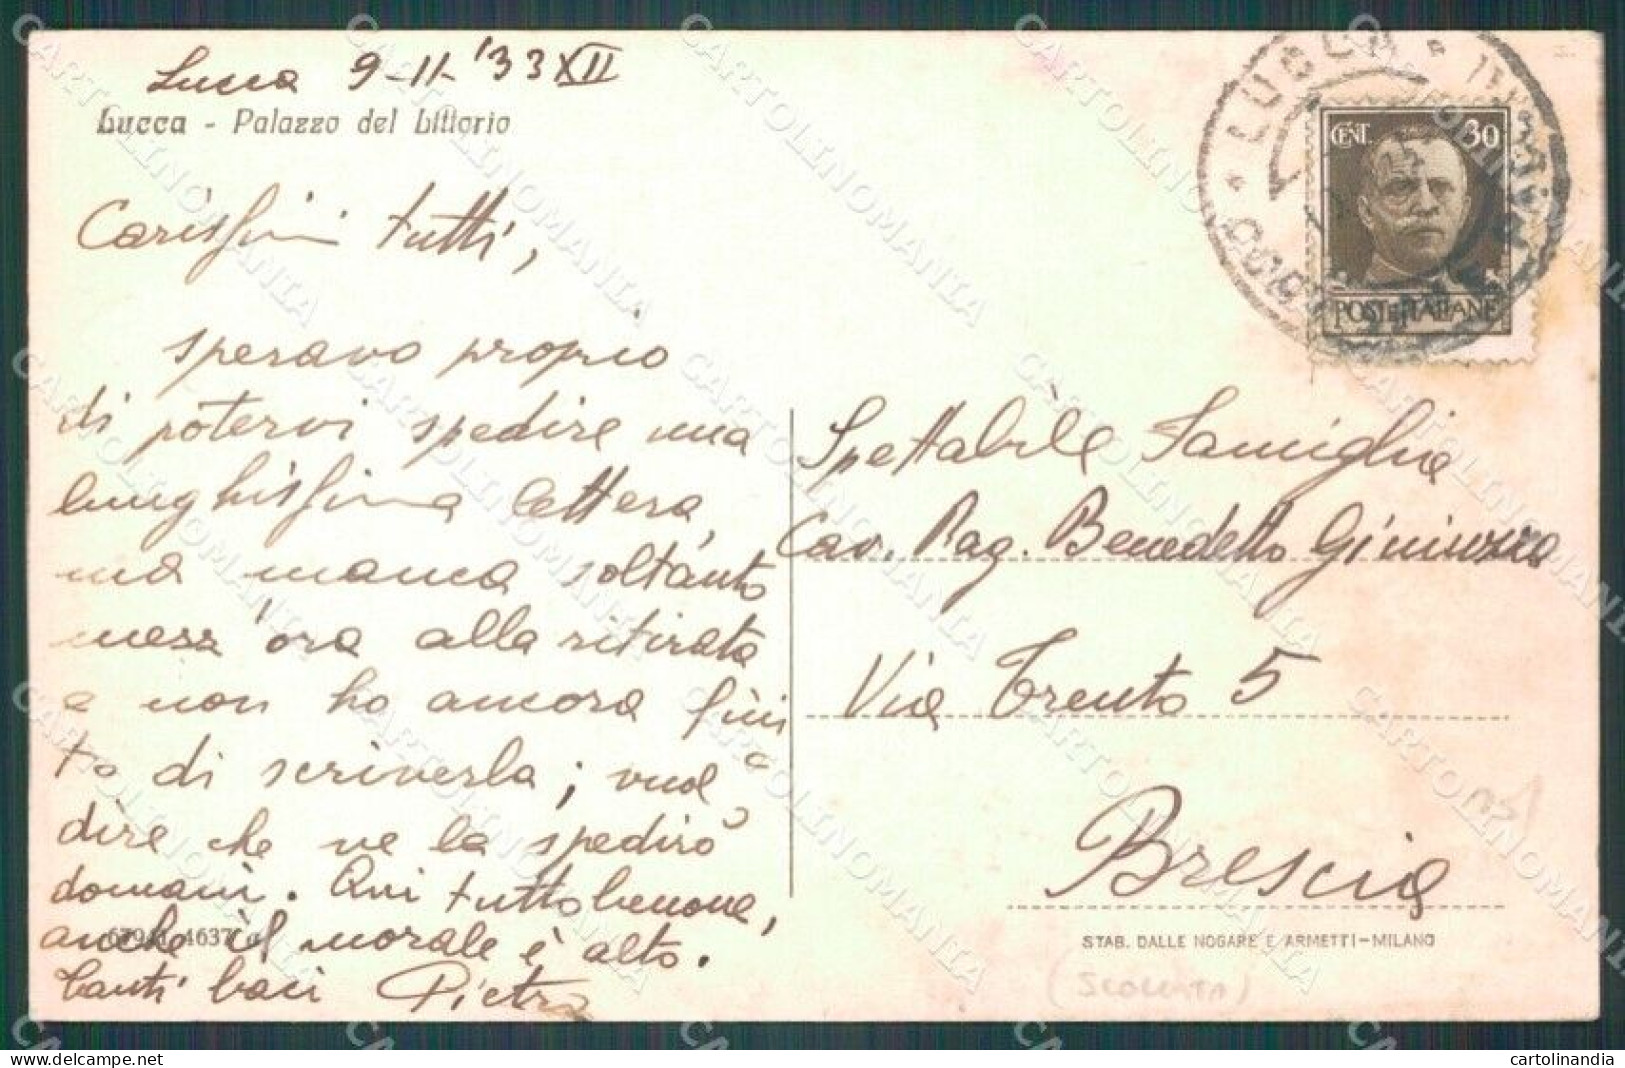 Lucca 9-11-'33 XII
Lucca - Palazzo del Littorio
Carissimi tutti,
speravo proprio
di potervi spedire una
lunghissima lettera,
ma manca soltanto
mezz'ora alla ritirata
e non ho ancora fini
to di scriverla; vuol
dire che ve la spedirò
domani. Qui tutto benone,
anche il morale è alto.
Tanti baci Pietro
CENT. 30
POSTE ITALIANE
LUCCA
Spettabile Famiglia
Cav. Rag. Benedetto
Via Trento 5
Brescia
STAB. DALLE NOGARE E ARMETTI-MILANO
(SCOLLATA)
CARTOLINOMANIA
cartolinandia